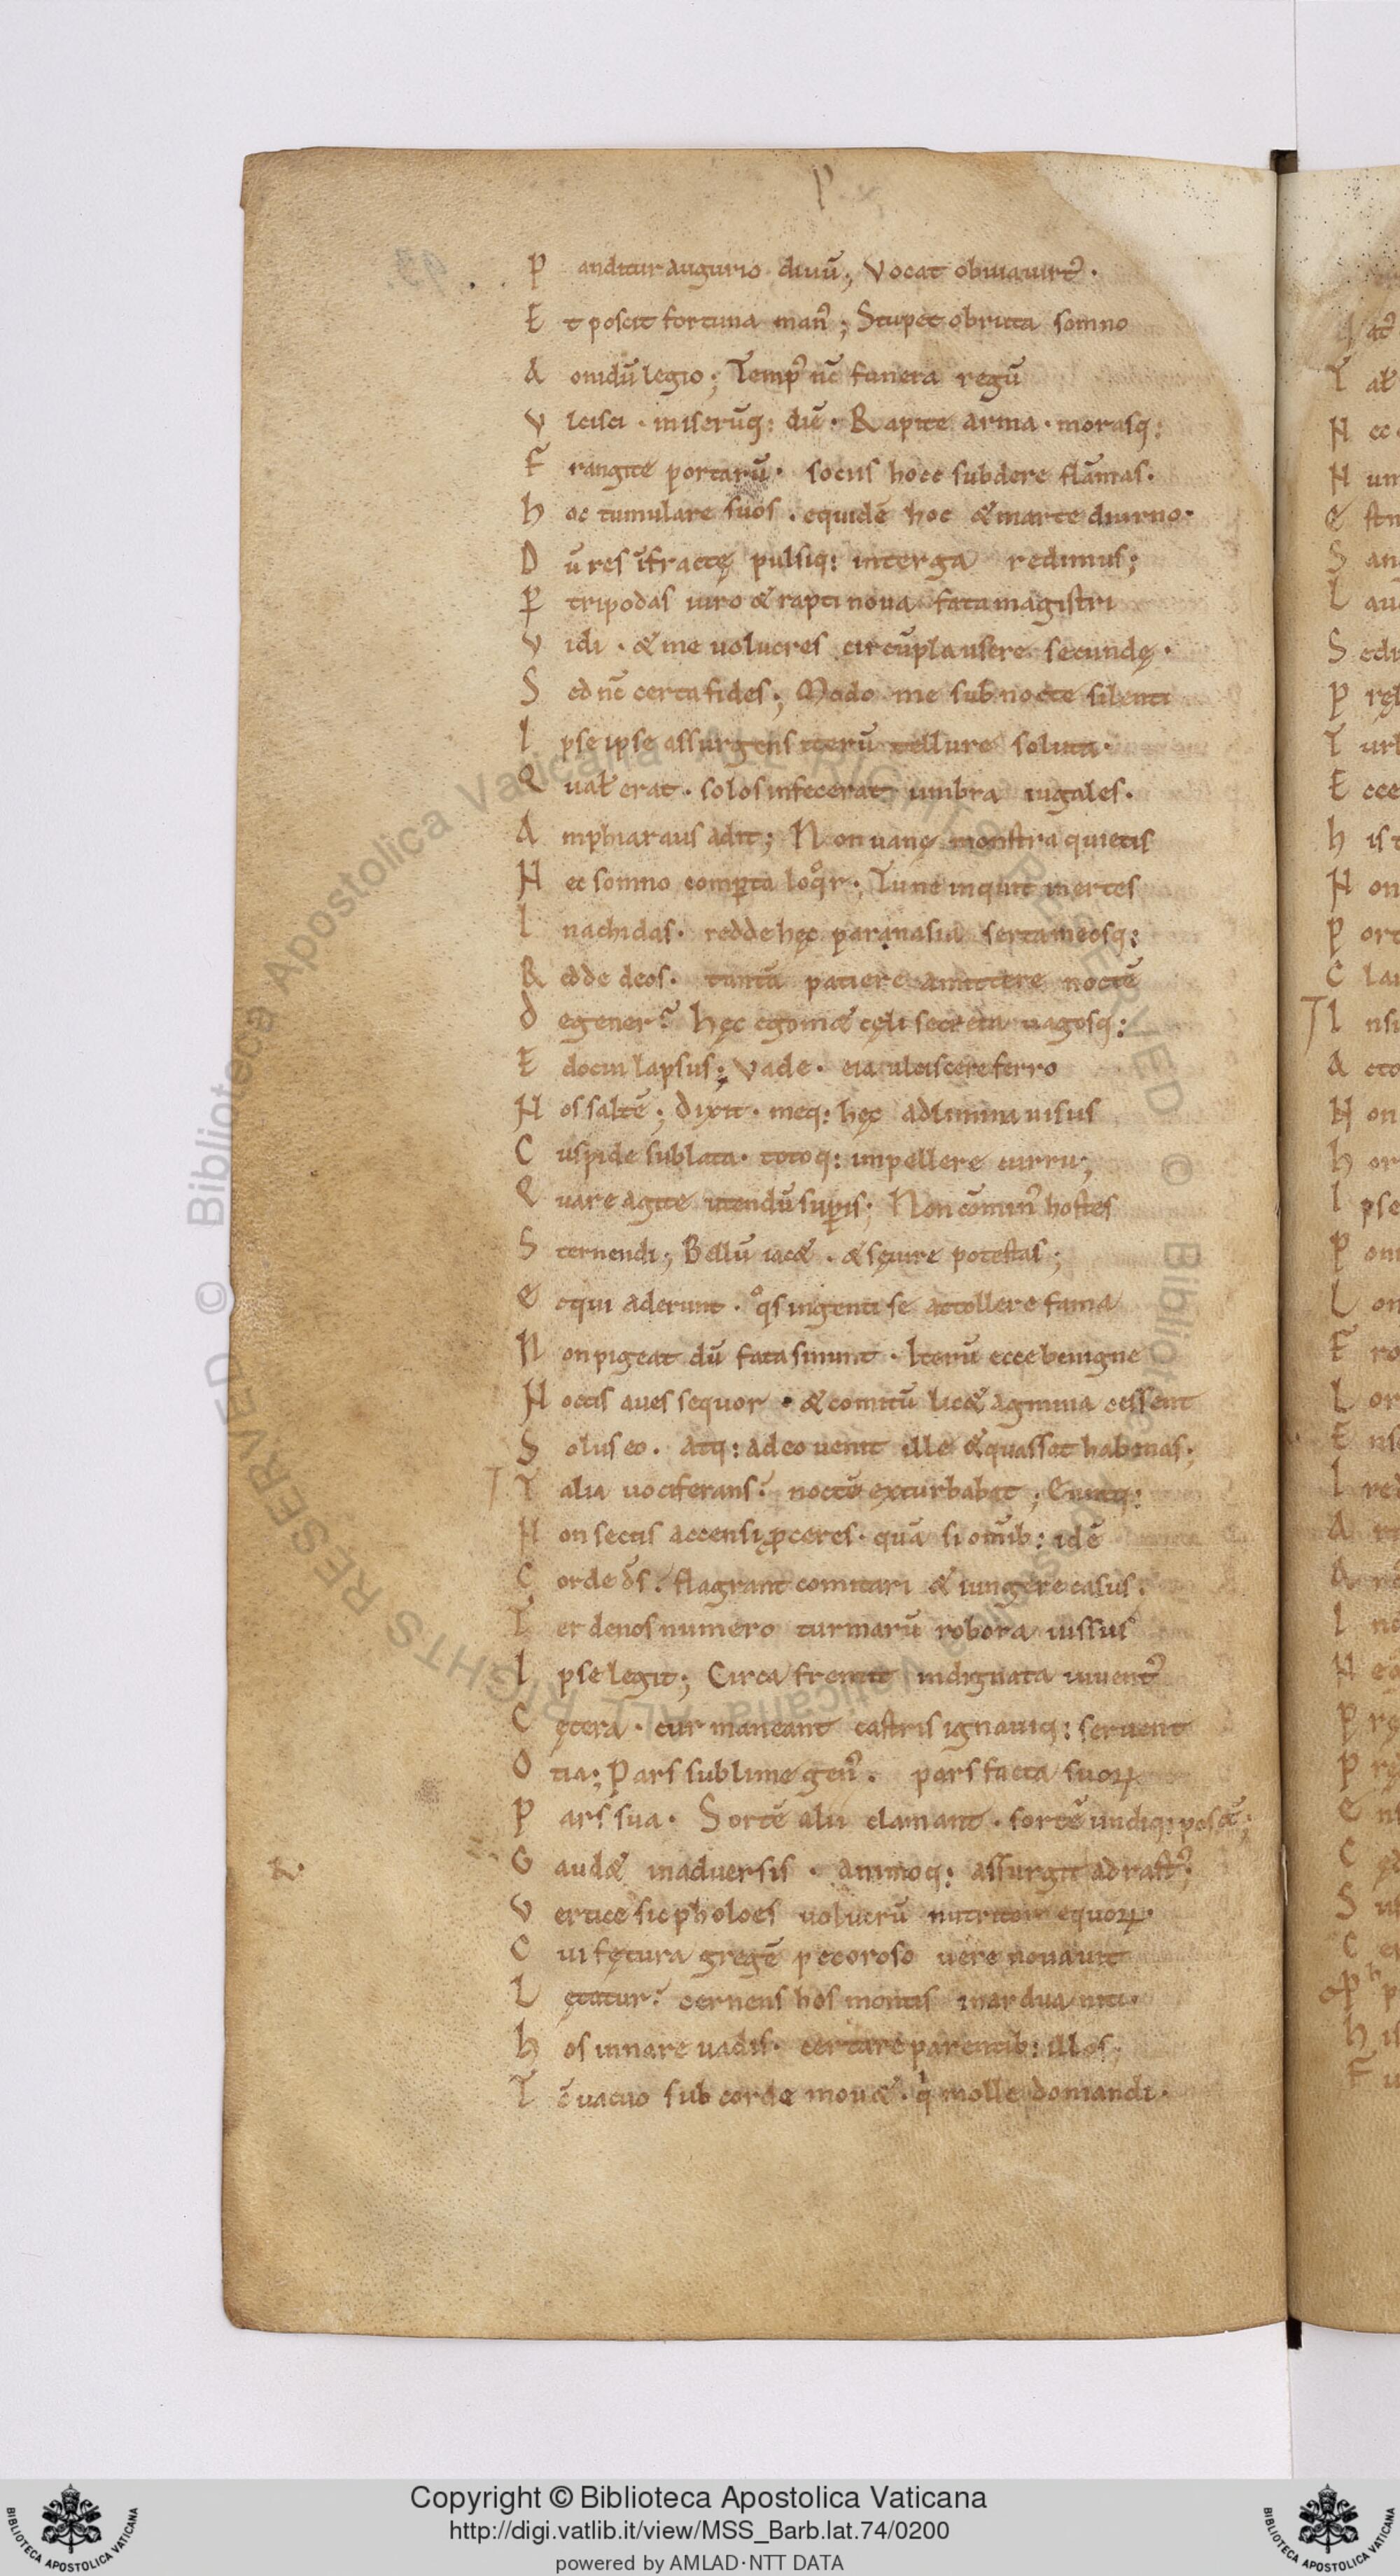 P anditur augurio diuū; Vocat obuia uirtꝰ·
E t poscit fortuna manꝰ; Stupet obruta somno
A onidū legio; Tempꝰ nc̄ funera regū
V lcisci · miserūq: diē· Rapite arma · morasq:
F rangite portarū· sociis hocc subdere flāmas·
h oc tumulare suos · equidē hoc & marte diurno·
D ū res īfractę pulsiq: interga redimus;
P̲ tripodas iuro & rapti noua fata magistri
V idi · & me uolucres circūplausere secundę·
S ed nc̄ certa fides; Modo me sub nocte silenti
I pse ipse assurgens iterū tellure soluta·
Q ual̄ erat · solos infecerat umbra iugales·
A mphiaraus adit; Non uanę monstra quietis
N ec somno comp̲ta loqͦr; Tune inquit inertes
I nachidas· redde hęc paranasia serta meosq:
R edde deos· tantā patiere amittere noctē
D egener? hęc egomæ cęli secreta uagosq:
E docui lapsus; Vade· eia ulciscere ferro
N os saltē; dixit · meq: hęc ad limina uisus
C uspide sublata· totoq: impellere curru;
Q uare agite utendū sup̲is; Non cōminꝰ hostes
S ternendi; Bellū iacæ · & sęuire potestas;
E cqui aderunt · qͦs ingenti se attollere fama
N on pigeat dū fata sinunt · Iterū ecce benigne
N octis aues sequor · & comitū licæ agmina cessent
S olus eo · atq: adeo uenit ille & quassat habenas;
T alia uociferans? noctē exturbabat; Euntq:
N on secus accensi ꝓceres· quā si om̄ib: idē
C orde d̄s. flagrant comitari & iungere casus.
T er denos numero turmarū robora iussus
I pse legit; Circa fremit indignata iuuentꝰ
C ętera · cur maneant castris ignauiq: seruent
O tia; Pars sublime genꝰ · pars facta suoꝝ
P ars sua· Sortē alii clamant · sortē undiq: posct̄;
G audæ inaduersis · animoq: assurgit adrastꝰ;
R·
V ertice sic pholoes uolucrū nutritor equoꝝ·
C ui fętura gregē pecoroso uere nouauit
L ętatur? cernens hos montis inardua niti·
h os innare uadis· certare parentib: illos;
T c̄ uacuo sub corde mouæ · qͥ molle domandi·
Copyright © Biblioteca Apostolica Vaticana
http://digi.vatlib.it/view/MSS_Barb.lat.74/0200
powered by AMLAD·NTT DATA